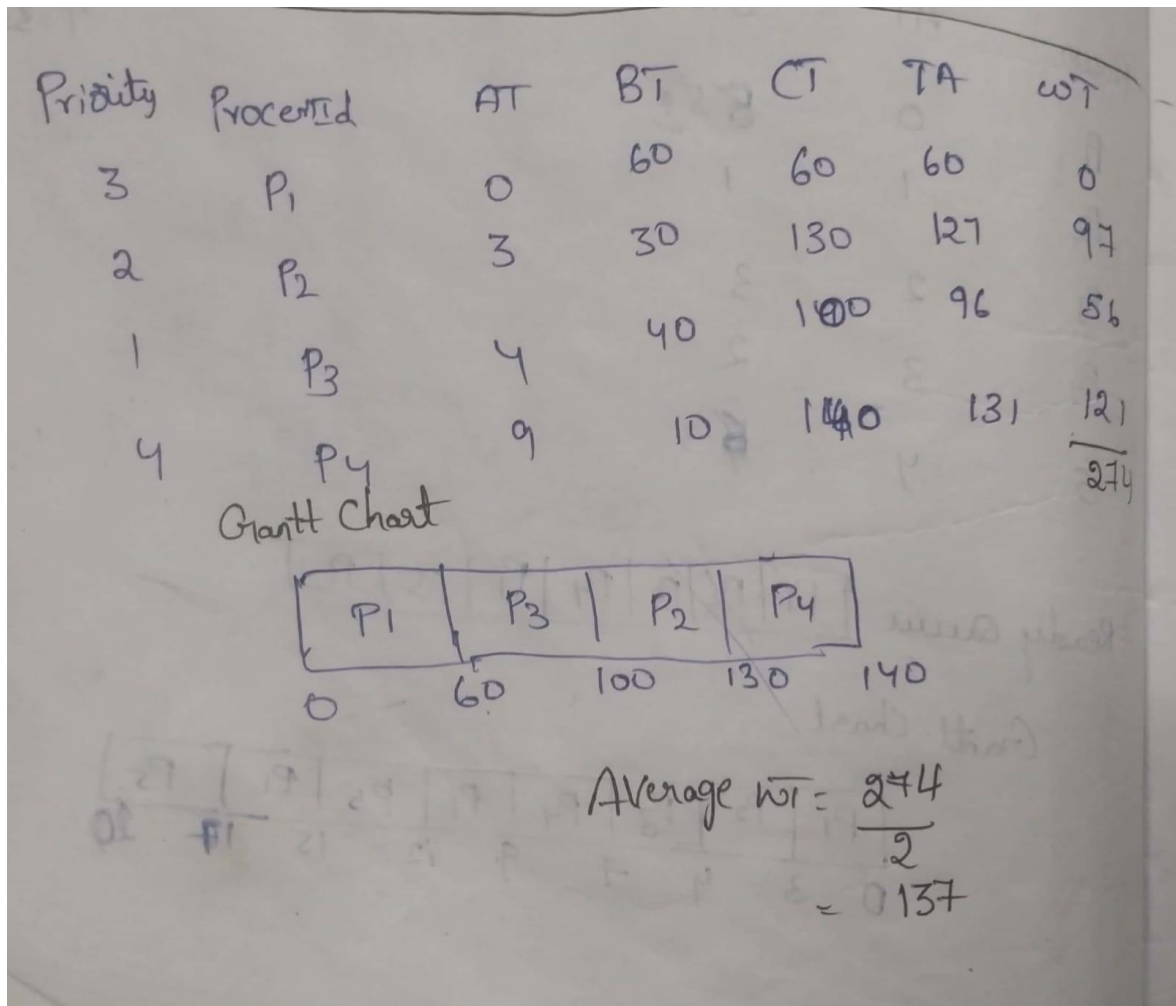 Priority ProcessId AT BT CT TA WT
3 P1 0 60 60 60 0
2 P2 3 30 130 127 97
1 P3 4 40 100 96 56
4 P4 9 10 140 131 121
274
Gantt Chart
P1 P3 P2 P4
0 60 100 130 140
Average WT = 274
2
= 137